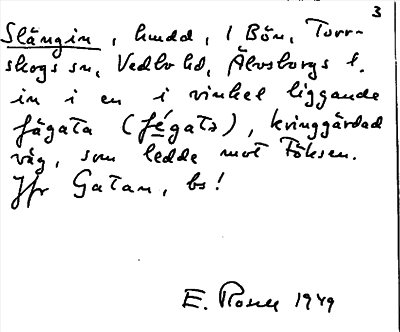 3
Slängin, hudd, i Bön, Torr-
skogs sn, Vedbo hd, Älvsborgs l.
in i en i vinkel liggande
fägata (fégata), kringgärdad
väg, som ledde mot Töksen.
Jfr Gatan, bs!
E. Rosell 1949